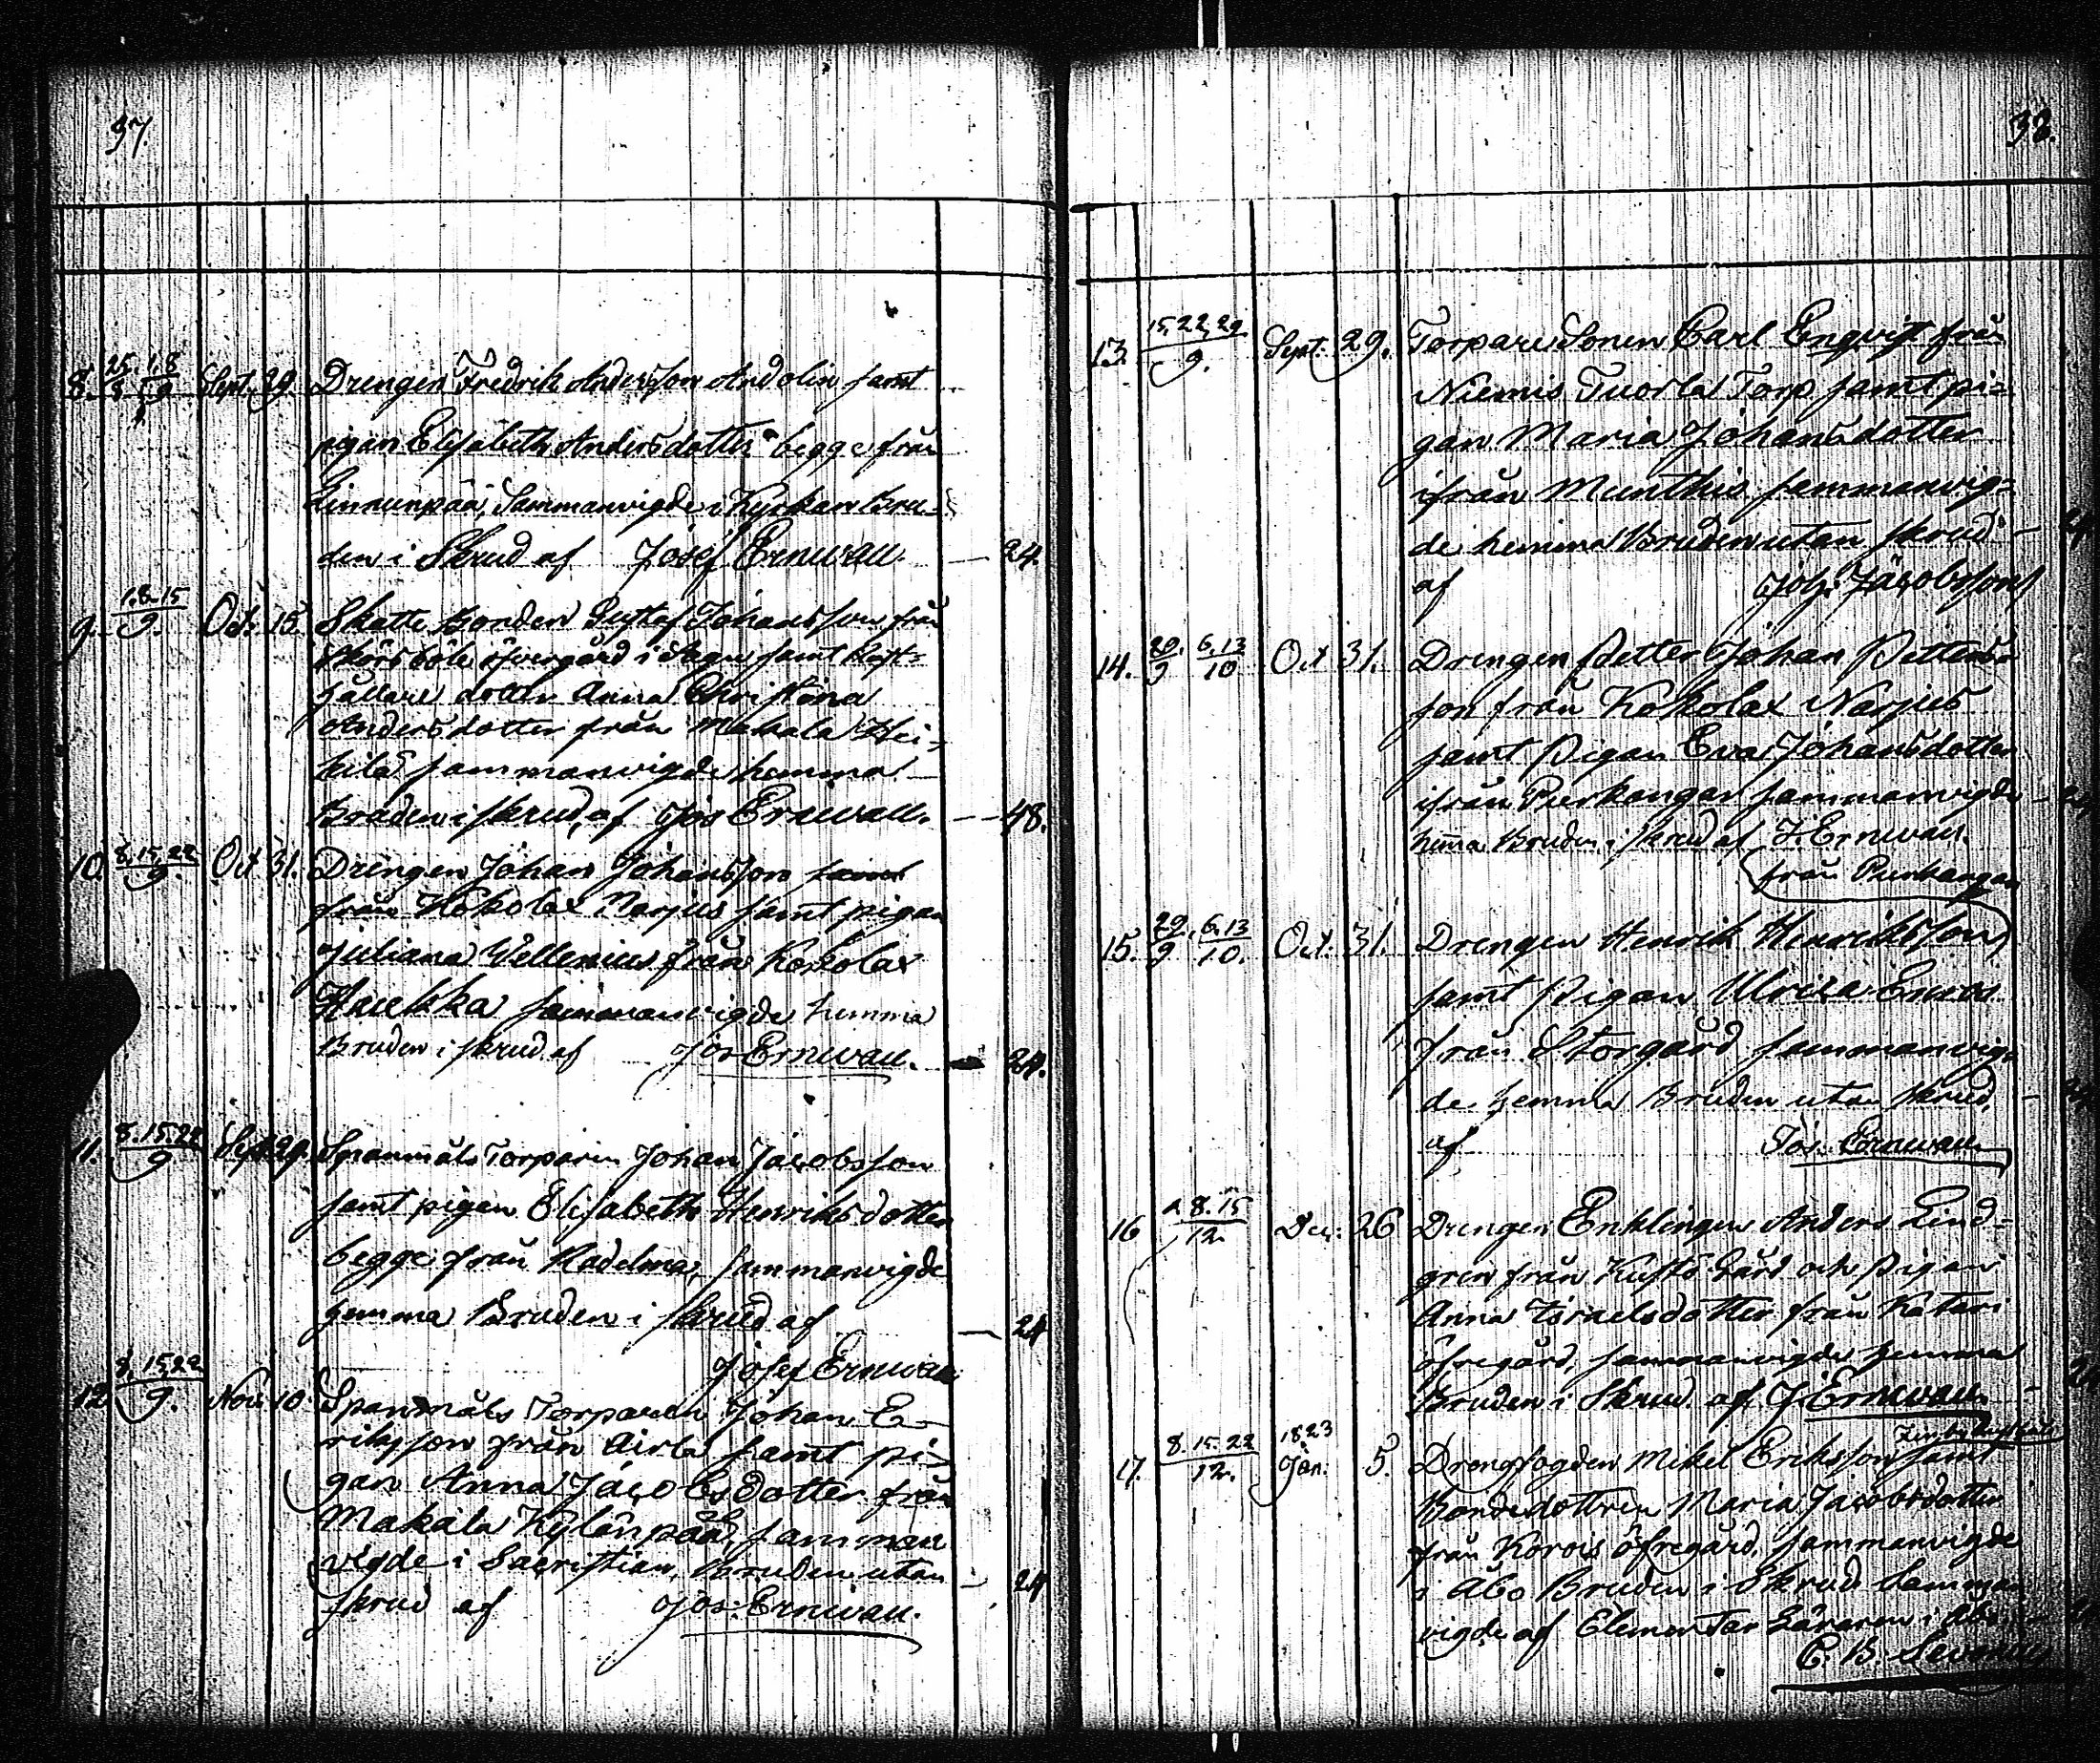 37.
8. 25. 1.8 Sept. 29. Drengen Fredrik Andersson Andolin samt
8 9
pigan Elisabeth Andersdotter begge från
Linnunpää, Sammanvigde i Kyrkan Bru-
den i Skrud af Josef Ernwall. — 24.
9. 1.8.15 Oct. 15. Skatte Bonden Gustaf Johansson från
9.
öfvergård i Sagu samt Rust-
hållare dotter Anna Christina
Andersdotter från Makala Hei-
kilä sammanvigde hemma
Bruden i skrud, af Jos Ernwall. — 48.
10. 8.15.22 Oct 31. Drengen Johan Johansson samt
9.
från Kokolax Narjus samt pigan
Juliana Vellenius från Kokolax
Haukka sammanvigde hemma
Bruden i skrud af Jos Ernwall. — 24.
11. 8.15.22 Sept 29. Spanmåls Torparen Johan Jacobsson
9
samt pigan Elisabeth Henriksdotter
begge från Kadelma, sammanvigde
hemma Bruden i skrud af — 24
Josef Ernwall
12 8.15.22 Nov: 10. Spanmåls Torparen Johan E-
9.
riksson från Airla samt pi-
gan Anna Jacobsdotter från
Makala Kylänpää, samman
vigde i Sacristian, Bruden utan — 24
skrud af Jos: Ernwall.
38.
13. 15,22,29. Sept. 29. Torpare Sonen Carl Engvist från
9.
Niemis Tuorla Torp samt pi-
gan Maria Johansdotter
ifrån Munthis sammanvig-
de hemma Bruden utan skrud —
af Joh: Jacobsson
14. 29. 6.13 Oct 31. Drengen Petter Johan Petters-
9 10
son från Kokolax Narjus
samt Pigan Eva Johansdotter
ifrån Purkangar sammanvigde —
hema Bruden i skrud af J. Ernwall.
från Purkangar
15. 29. 6.13 Oct. 31. Drengen Henrik Henriksson
9 10.
samt Pigan Ulrica Enros
från Storgård sammanvig-
de hemma Bruden utan skrud,
af Jos. Ernwall
16 1.8.15 Dec: 26 Drengen Enklingen Anders Lind-
12.
gren från Kustö Gård och Pigan
Anna Israelsdotter från Katari
öfregård, sammanvigde hemma
Bruden i Skrud. af J. Ernwall —
17. 8.15.22 1823 Jan. 5. Drengfogden Mikel Eriksson samt
12.
Bondedottren Maria Jacobsdotter
från Korois öfregård, sammanvigde
i Åbo Bruden i Skrud Samman
vigde af Elementar Läraren i Åbo
C. B.